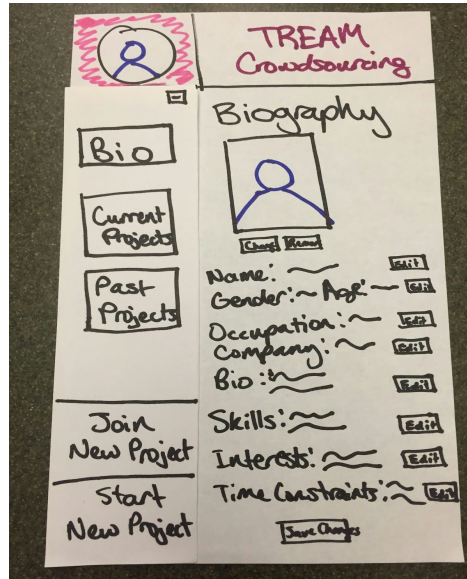 TREAM
Crowdsourcing
Bio
Current
Projects
Past
Projects
Join
New Project
Start
New Project
Biography
Change Remove
Name: Edit
Gender: Age: Edit
Occupation: Edit
Company: Edit
Bio: Edit
Skills: Edit
Interests: Edit
Time Constraints: Edit
Save Changes